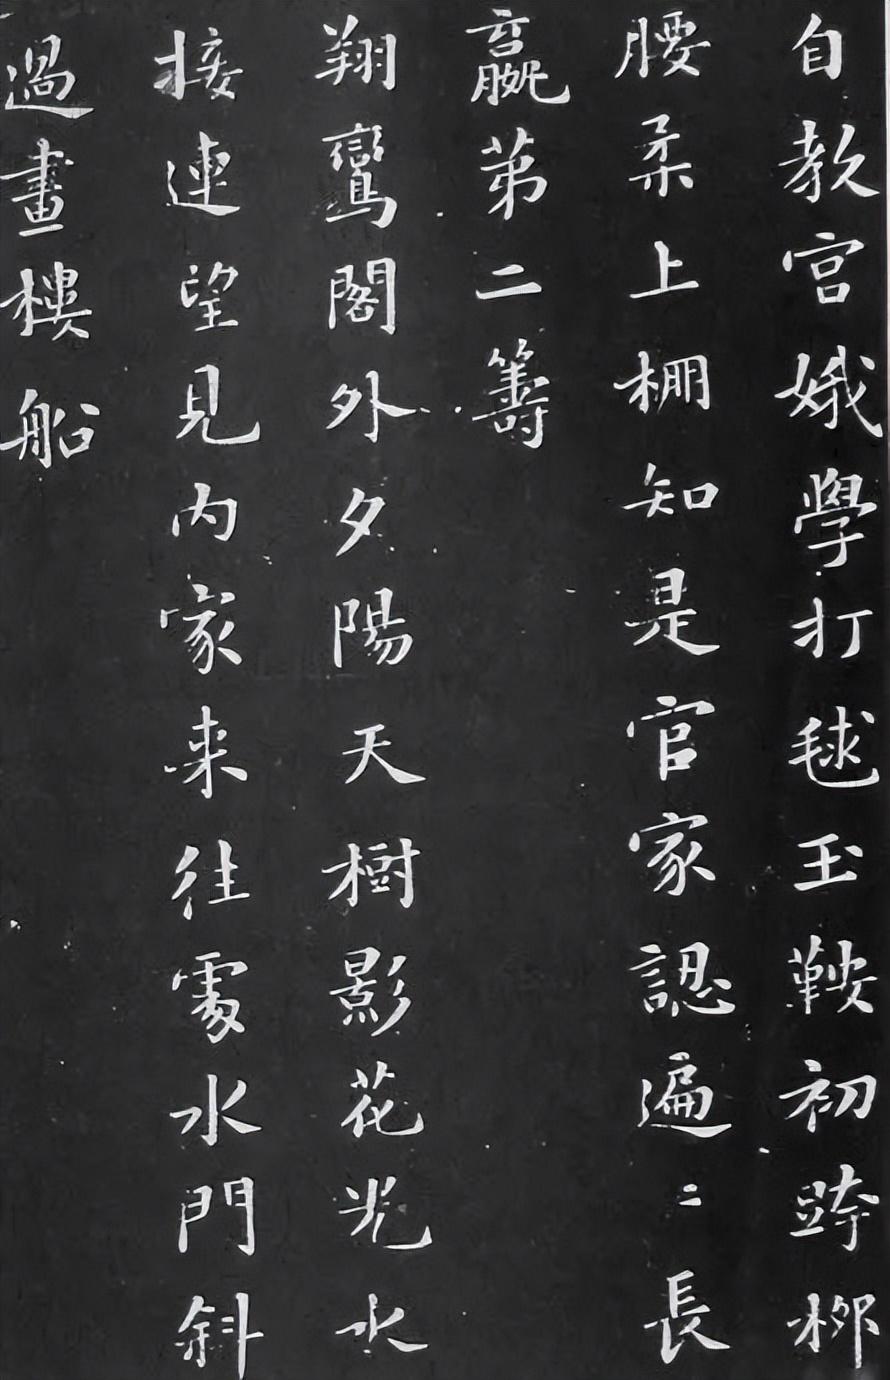 自教宮娥學打毬玉鞍初跨柳
腰柔上棚知是官家認遍〻長
嬴第二籌
翔鸞閣外夕陽天樹影花光水
接連望見內家来往處水門斜
過畫樓船